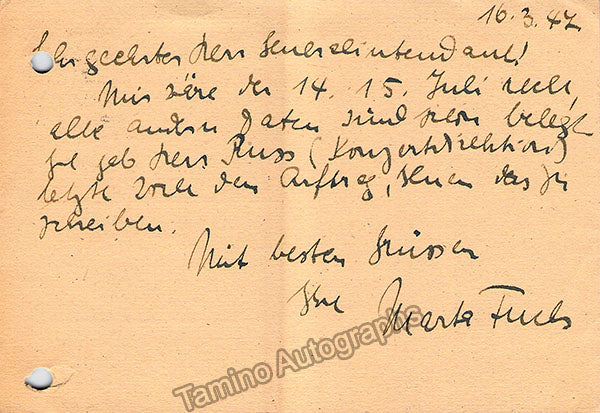 16.3.47
Sehr geehrter Herr Generalintendant!
Mir wäre der 14. 15. Juli recht,
alle andern Daten sind schon belegt
gab Herr Russ (Konzertdirektion)
letzte Woche den Auftrag, Ihnen das zu
schreiben.
Mit besten Grüssen
Ihre
Marta Fuchs
Tamino Autographs